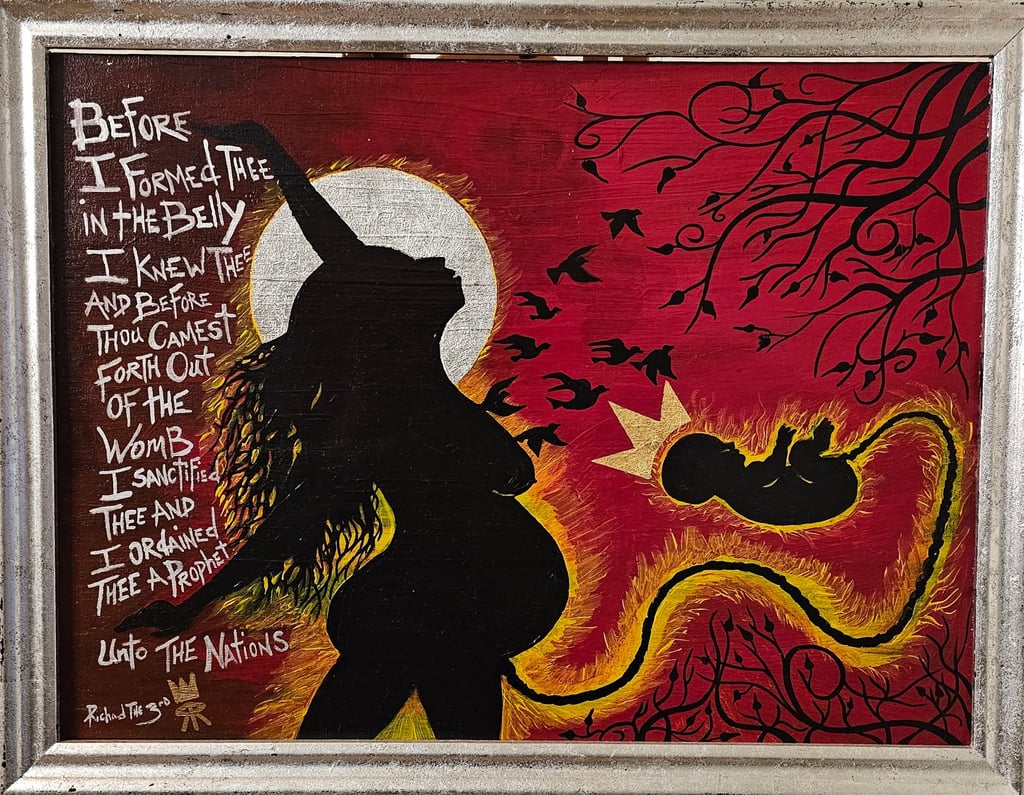 Before
I Formed Thee
in the Belly
I Knew Thee
And Before
Thou Camest
Forth Out
Of the
Womb
I sanctified
Thee And
I ordained
Thee A Prophet
Unto The Nations
Richad The 3rd